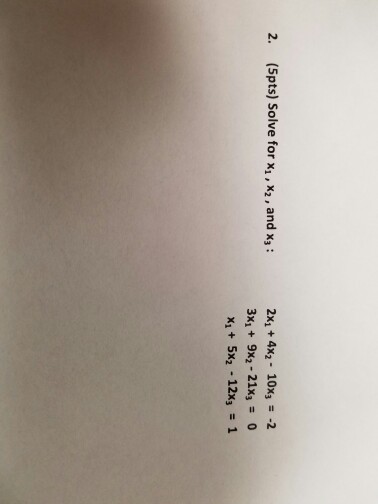 2. (5pts) Solve for x₁, x₂, and x₃:
2x₁ + 4x₂ - 10x₃ = -2
3x₁ + 9x₂ - 21x₃ = 0
x₁ + 5x₂ - 12x₃ = 1